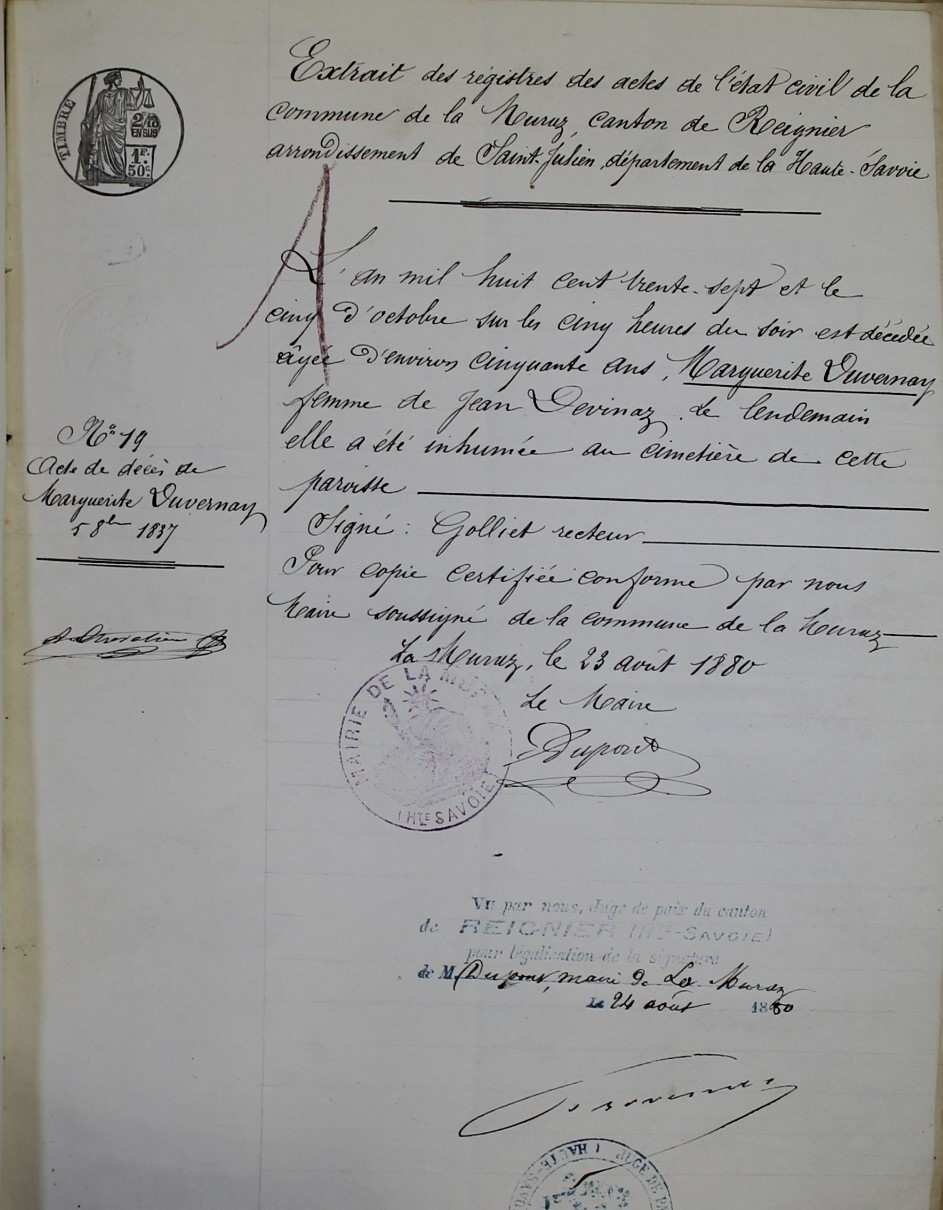 TIMBRE
2/10
EN SUS
1F.
50c.
Extrait des régistres des actes de l'état civil de la
commune de la Muraz, canton de Reignier
arrondissement de Saint-Julien, département de la Haute-Savoie
L'an mil huit cent trente-sept et le
cinq d'octobre sur les cinq heures du soir est décédée
âgée d'environ cinquante ans, Marguerite Duvernay
femme de Jean Devinaz. Le lendemain
elle a été inhumée au cimetière de cette
paroisse
Signé: Golliet recteur
Pour copie certifiée conforme par nous
Maire soussigné de la commune de la Muraz
La Muraz, le 23 août 1880
Le Maire
Dupont
N° 19
Acte de décès de
Marguerite Duvernay
5 8bre 1837
MAIRIE DE LA MURAZ
(HTE SAVOIE)
Vu par nous, Juge de paix du canton
de REIGNIER (HTE-SAVOIE)
pour légalisation de la signature
de M. Dupont, maire de La Muraz
Le 24 août 1880
JUGE DE PA
HAUTE-SA